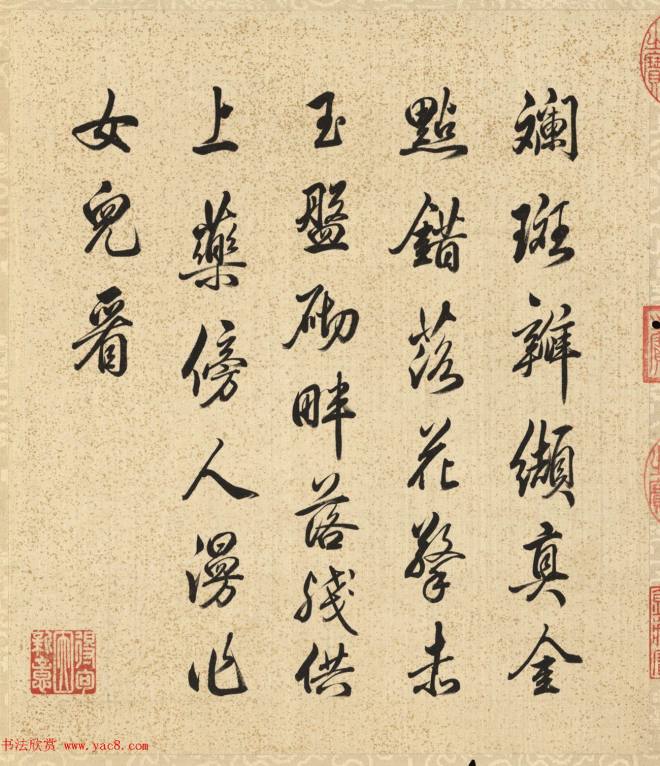 斓斑辦纈真金
點錯落花擎未
玉盤砌畔落殘供
上藥傍人漫作
女兒看
书法欣赏 www.yac8.com